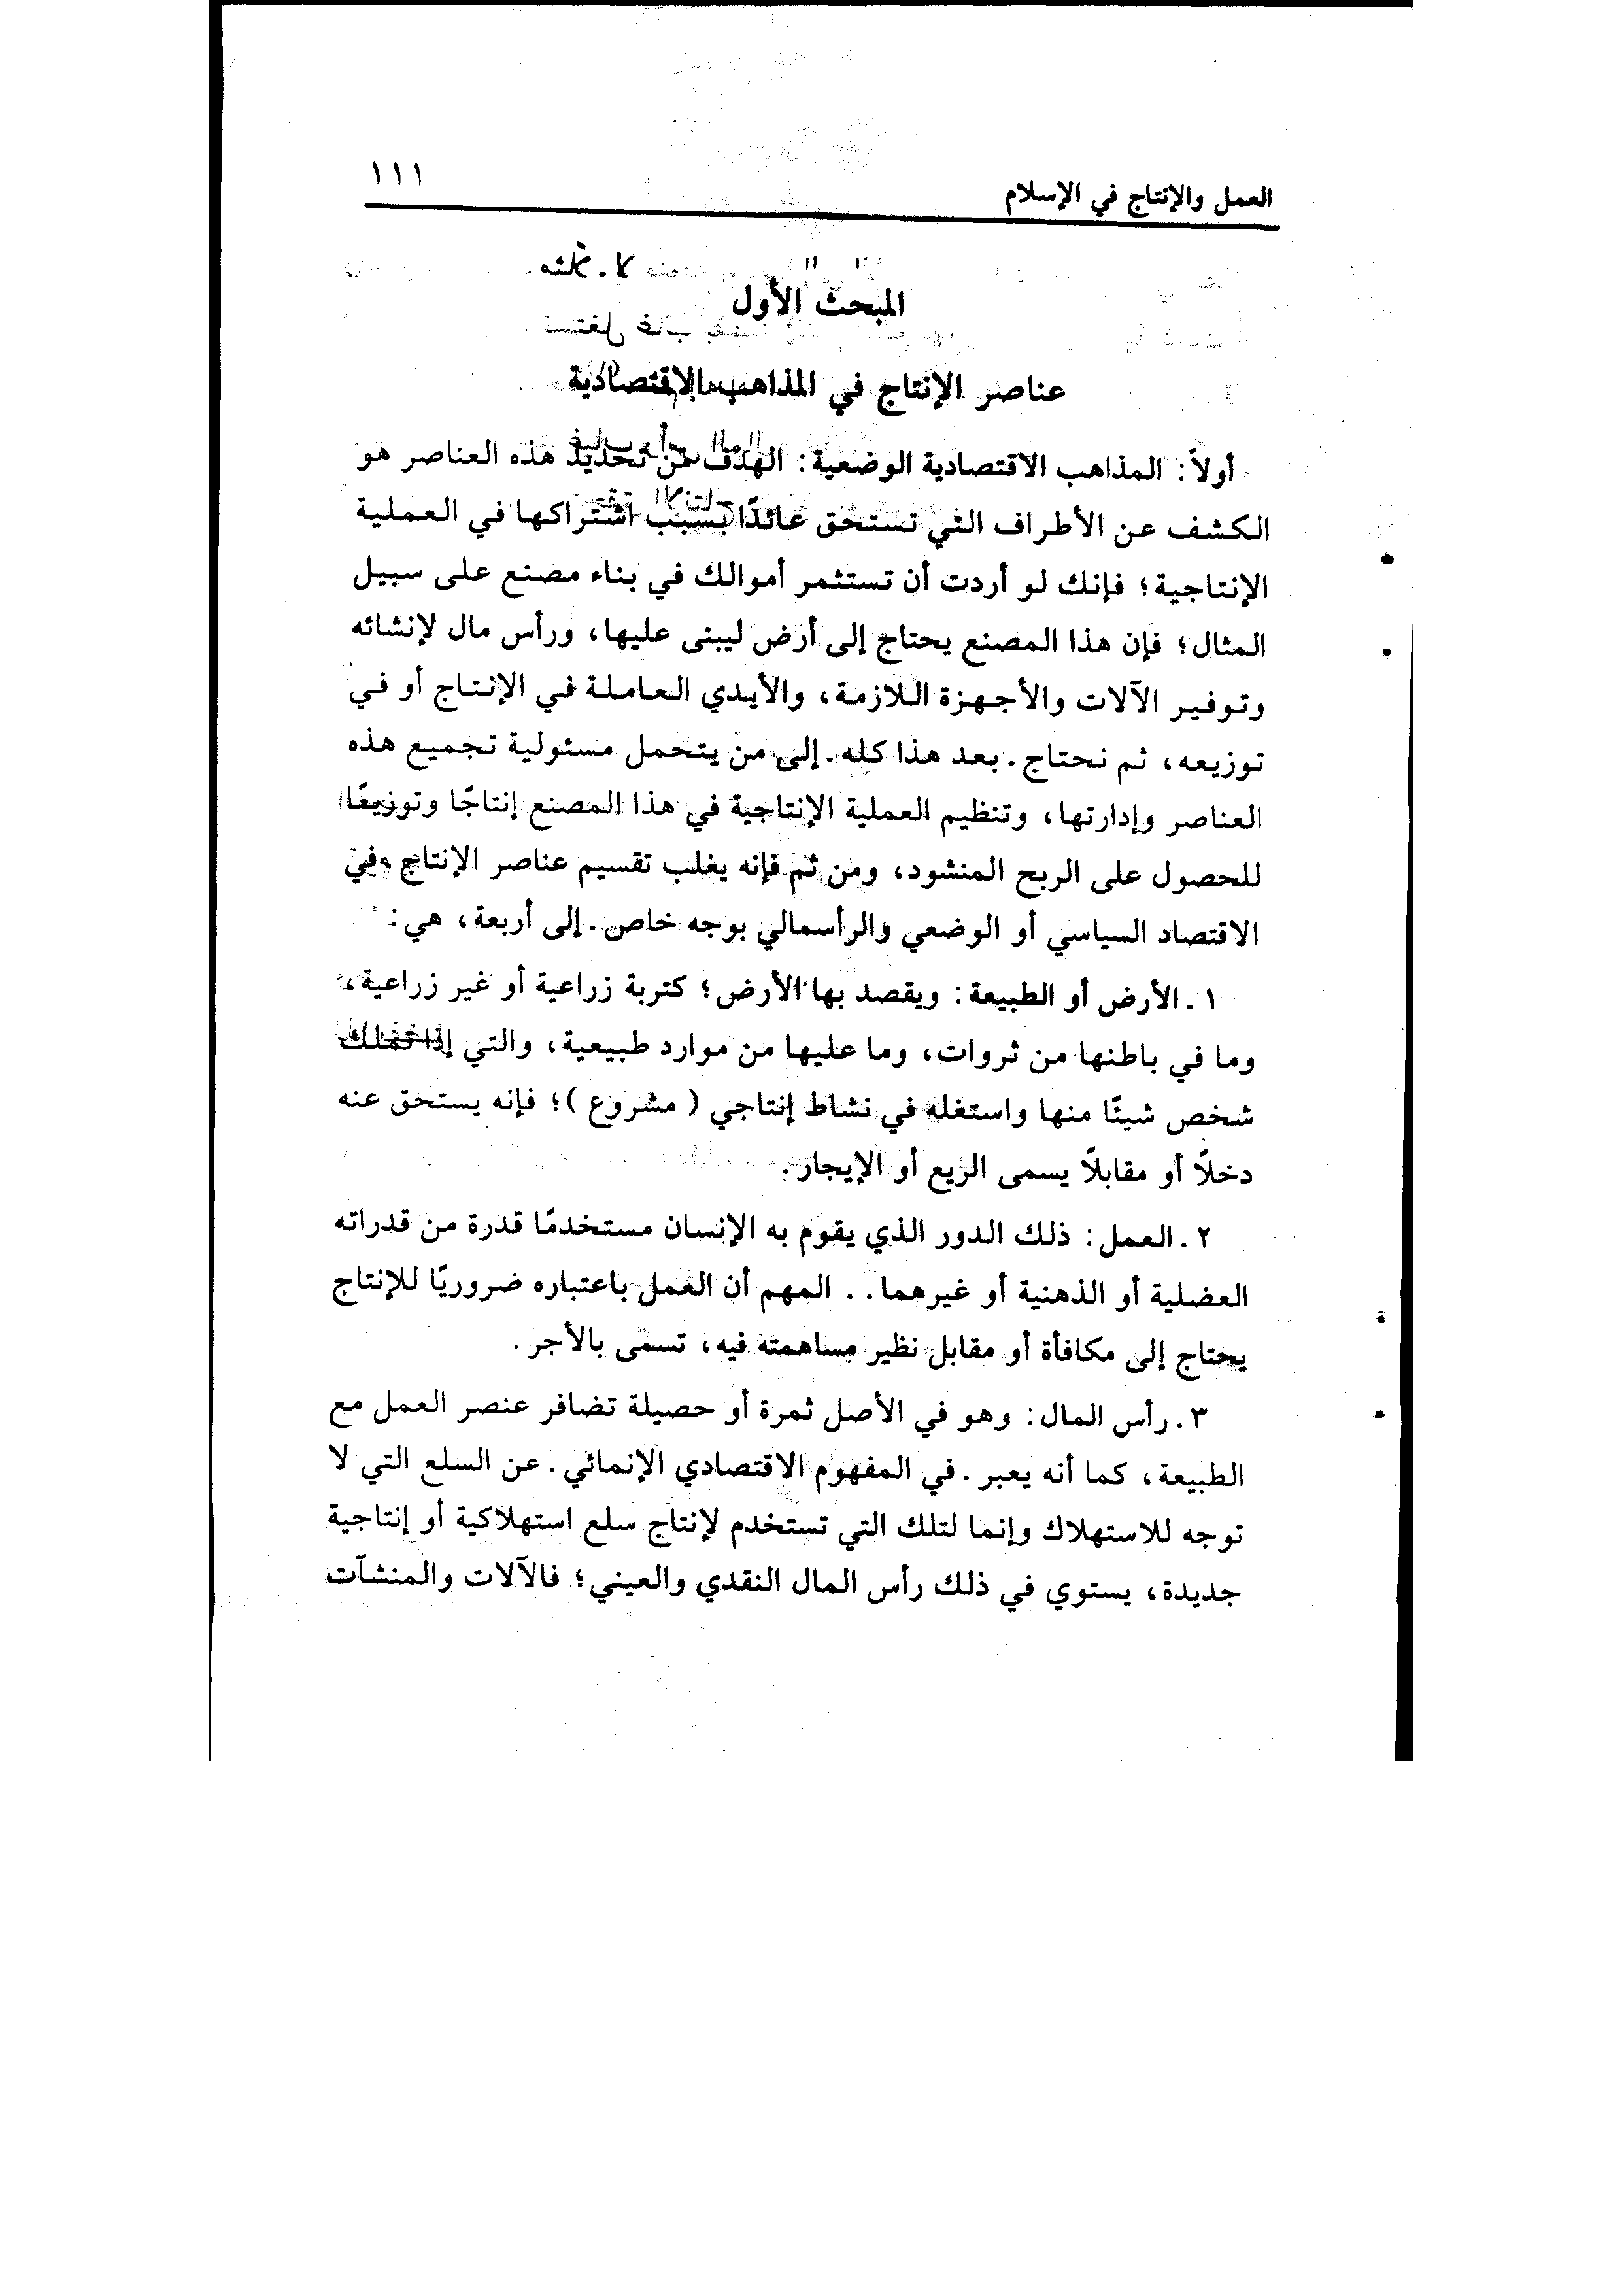 العمل والإنتاج في الإسلام ١١١
المبحث الأول
عناصر الإنتاج في المذاهب الاقتصادية
أولاً: المذاهب الاقتصادية الوضعية: الهدف من تحديد هذه العناصر هو
الكشف عن الأطراف التي تستحق عائدًا بسبب اشتراكها في العملية
الإنتاجية؛ فإنك لو أردت أن تستثمر أموالك في بناء مصنع على سبيل
المثال؛ فإن هذا المصنع يحتاج إلى أرض ليبنى عليها، ورأس مال لإنشائه
وتوفير الآلات والأجهزة اللازمة، والأيدي العاملة في الإنتاج أو في
توزيعه، ثم نحتاج. بعد هذا كله. إلى من يتحمل مسئولية تجميع هذه
العناصر وإدارتها، وتنظيم العملية الإنتاجية في هذا المصنع إنتاجًا وتوزيعًا
للحصول على الربح المنشود، ومن ثم فإنه يغلب تقسيم عناصر الإنتاج. في
الاقتصاد السياسي أو الوضعي والرأسمالي بوجه خاص. إلى أربعة، هي:
١. الأرض أو الطبيعة: ويقصد بها الأرض؛ كتربة زراعية أو غير زراعية،
وما في باطنها من ثروات، وما عليها من موارد طبيعية، والتي إذا تملك
شخص شيئًا منها واستغله في نشاط إنتاجي (مشروع)؛ فإنه يستحق عنه
دخلًا أو مقابلًا يسمى الريع أو الإيجار.
٢. العمل: ذلك الدور الذي يقوم به الإنسان مستخدمًا قدرة من قدراته
العضلية أو الذهنية أو غيرهما.. المهم أن العمل باعتباره ضروريًا للإنتاج
يحتاج إلى مكافأة أو مقابل نظير مساهمته فيه، تسمى بالأجر.
٣. رأس المال: وهو في الأصل ثمرة أو حصيلة تضافر عنصر العمل مع
الطبيعة، كما أنه يعبر. في المفهوم الاقتصادي الإنمائي. عن السلع التي لا
توجه للاستهلاك وإنما لتلك التي تستخدم لإنتاج سلع استهلاكية أو إنتاجية
جديدة، يستوي في ذلك رأس المال النقدي والعيني؛ فالآلات والمنشآت